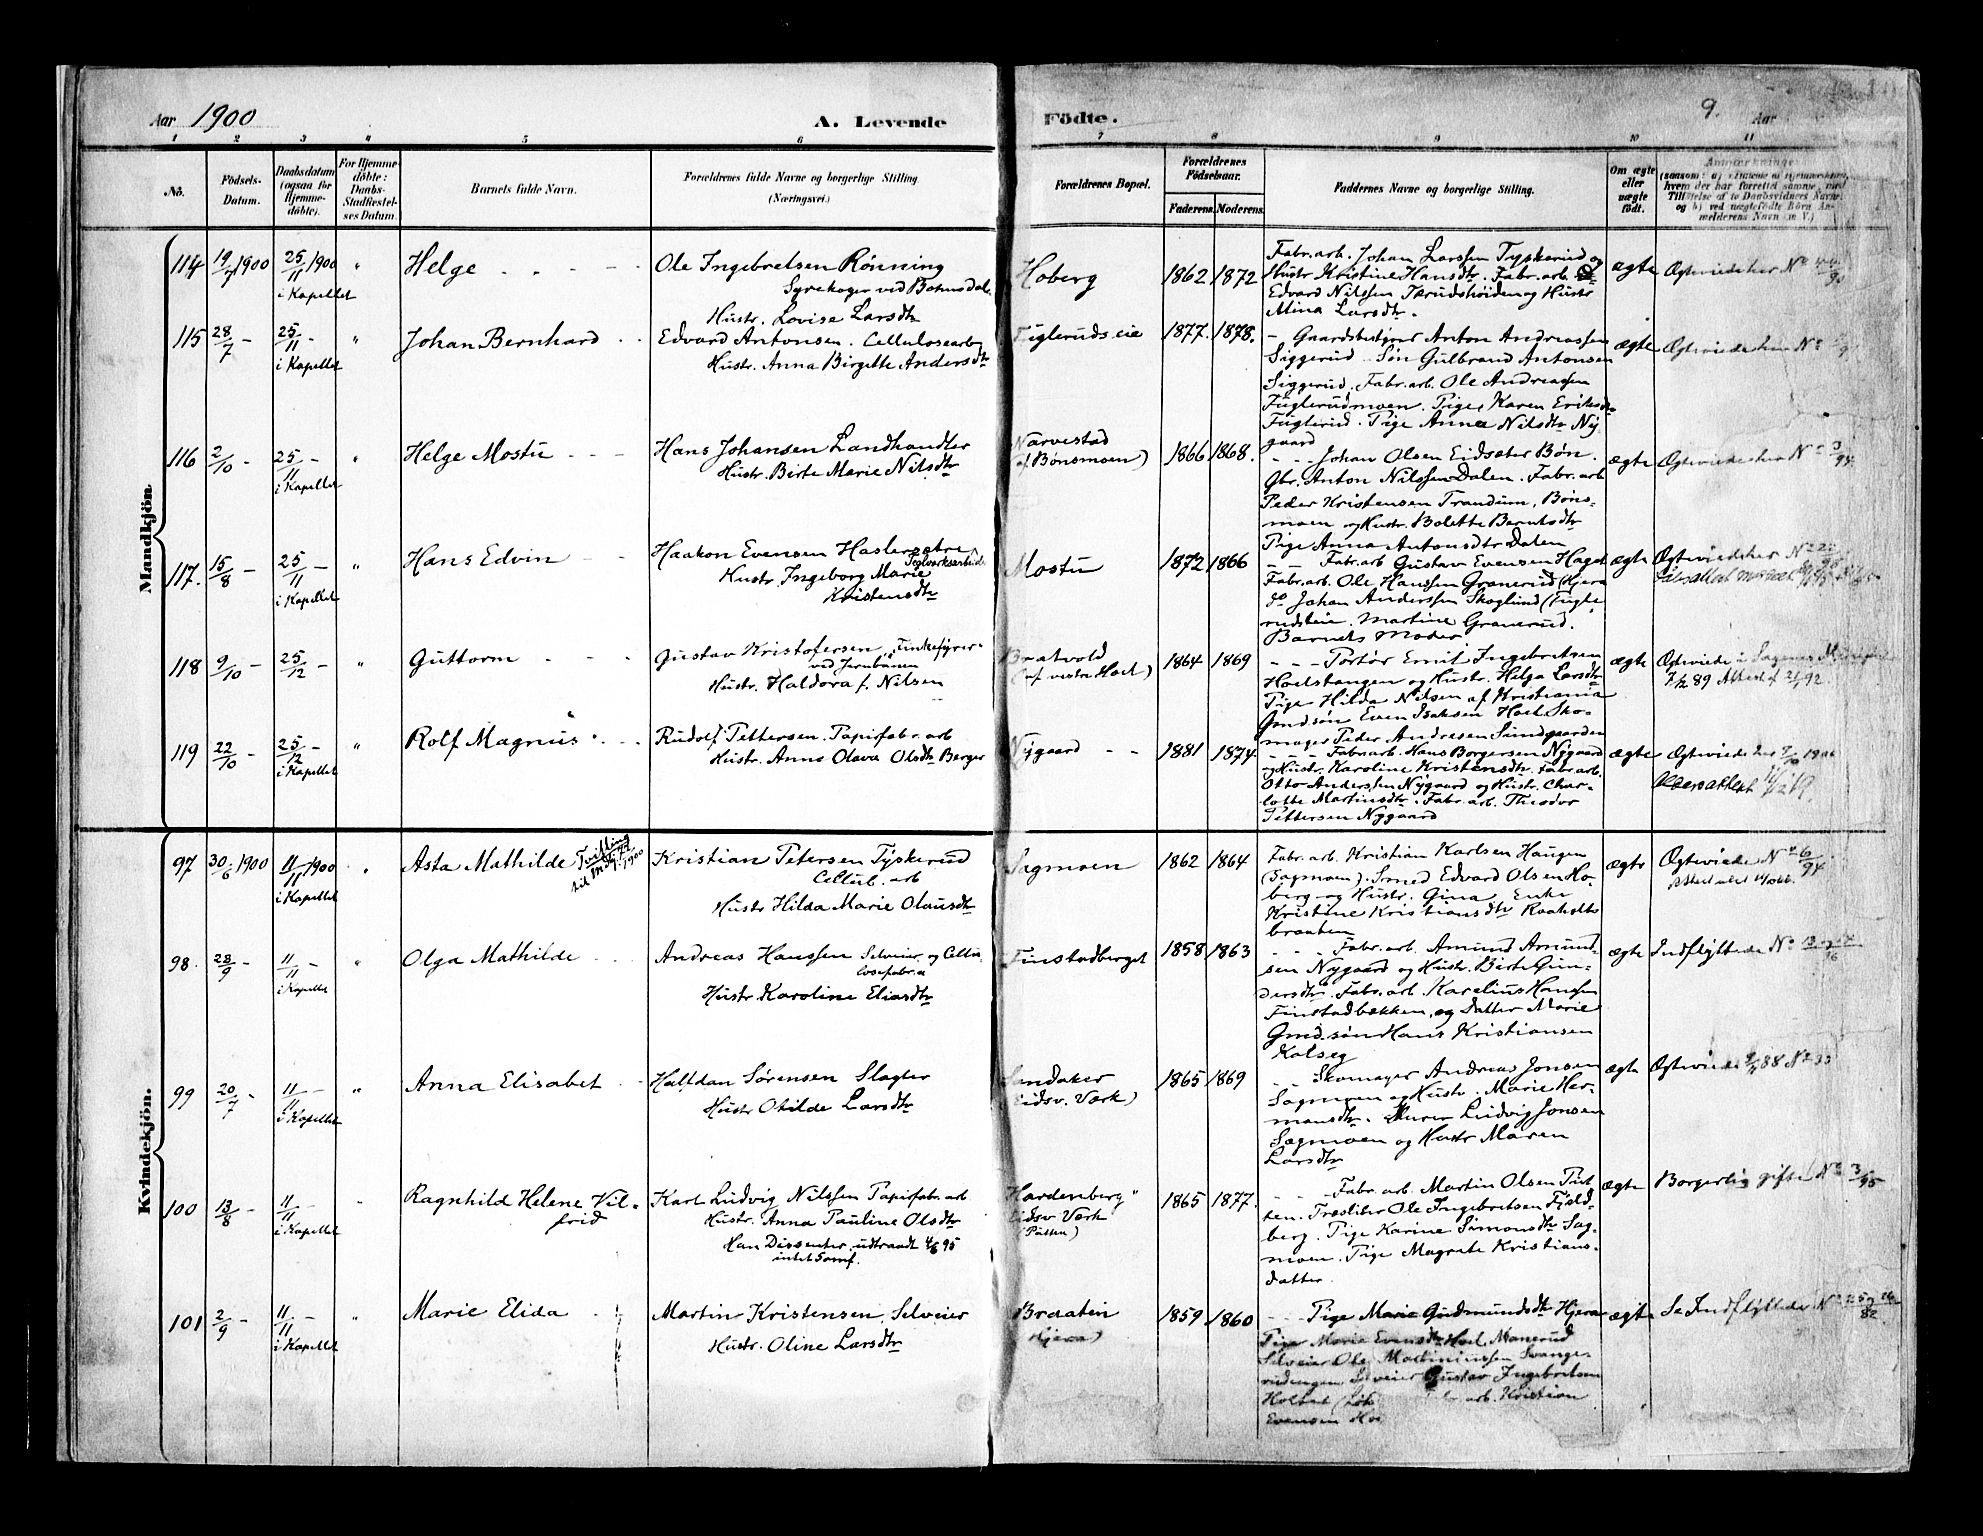 Aar 1900
A. Levende
Födte.
9.
Aar
1 2 3 4 5 6 7 8 9 10 11
No.
Födsels-Datum.
Daabsdatum (ogsaa for Hjemmedöbte).
For Hjemmedöbte: Daabs-Stadfæstelses Datum.
Barnets fulde Navn.
Forældrenes fulde Navne og borgerlige Stilling.
(Næringsvei.)
Forældrenes Bopæl.
Forældrenes Födselsaar.
Faderens. Moderens.
Faddernes Navne og borgerlige Stilling.
Om ægte eller uægte födt.
Mandkjön.
114 19/7 1900 25/11 1900 " Helge
i Kapellet
Ole Ingebretsen Rönning
Syrekoger ved Bohnsdal.
Hustr. Lovise Larsdtr
Hoberg 1862 1872
Fabr. arb. Johan Larssen Tyskerud og
Hustr Kristine Hansdtr. Fabr. arb.
Edvard Nilssen Tærudshöiden og Hustr
Mina Larsdtr.
ægte Ægteviedeher No
115 28/7 - 25/11 - " Johan Bernhard
i Kapellet
Edvard Antonsen. Cellulosearb
Hustr. Anna Birgitte Andersdtr
Fuglerudseie 1877. 1878.
- Gaardbestyrer Anton Andreassen
Siggerud - Sön Gulbrand Antonsen
Siggerud. Fabr. arb. Ole Andreasen
Fuglerudmoen. Pige Karen Eriksdtr
Fuglerud. Pige Anna Nilsdtr Ny-
gaard
ægte Ægteviedeher No
116 2/10 - 25/11 - " Helge Mostu
i Kapellet
Hans Johansen Landhandler
Hustr. Birte Marie Nilsdtr
Narvestad
af Bönsmoen) 1866 1868.
- - - Johan Olsen Eidsæter Bön.
Gbr. Anton Nilssen Dalen. Fabr. arb
Peder Kristensen Trandum, Böns-
moen og Hustr. Bolette Berntsdtr
Pige Anna Antonsdtr Dalen
ægte Ægteviedeher No 3/94
117. 15/8 - 25/11 - " Hans Edvin
i Kapellet
Haakon Evensen Haslersætre
Teglverksarbeid.
Hustr Ingeborg Marie
Kristensdtr
Mostu 1872 1866
- - Fabr. arb Gustav Evensen Haget
Fabr. arb. Ole Hanssen Granerud (Hjera
do Johan Anderssen Skoglund (Fugle
rudseie. Martine Granerud.
Barnets Moder
ægte Ægteviedeher No
118 9/10 - 25/12 - " Guttorm
Gustav Kristofersen,
ved Jernbanen
Hustr. Haldora f. Nilsen
Bratvold
(af vestre Hoel) 1864 1869
- - - Portör Emil Ingebretsen
Hoelstangen og Hustr. Helga Larsdtr
Pige Hilda Nilsen af Kristiania
Gmdsön Even Isaksen Hoel. Sko-
mager Peder Andresen Sundgaarden
ægte Ægteviede i Sagenes
89 Attest af 92.
119 22/10 - 25/12 - " Rolf Magnus
i Kapellet
Rudolf Pettersen. Papirfabr. arb
Hustr. Anna Olava Olsdtr Berger
Nygaard - - 1881 1874
- - - Fabr. arb. Hans Borgersen Nygaard
og Hustr. Karoline Kristensdtr. Fabr. arb.
Otto Anderssen Nygaard og Hustr. Char-
lotte Martinsdtr. Fabr. arb. Theodor
Pettersen Nygaard
ægte Ægteviedeher 1900
Kvindekjön.
97 30/6 1900 11/11 1900 " Asta Mathilde Tvilling
i Kapellet
Kristian Petersen Tyskerud
Cellul. arb
Hustr Hilda Marie Olausdtr
Sagmoen 1862 1864
Fabr. arb. Kristian Karlsen Haugen
(Sagmoen). Smed Edvard Olsen Ho-
berg og Hustr. Gina. Enke
Kristine Kristiansdtr Raaholts
braaten
ægte Ægteviede No 6/94
98. 28/9 - 11/11 - " Olga Mathilde
i Kapellet
Andreas Hanssen Selveier og Cellu-
losefabr. a
Hustr Karoline Eliasdtr
Finstadberget 1858 1863
- - - Fabr. arb. Amund Amund-
sen Nygaard og Hustr. Birte Gun-
dersdtr. Fabr. arb Karelius Hanssen
Finstadbækken, og Datter Marie
Gmd. sön Hans Kristiansen
Kolseg
ægte Indflyttede No
99 20/7 - 11/11 - " Anna Elisabet
i Kapellet
Halfdan Sörensen Slagter
Hustr Otilde Larsdtr
Sandaker
Eidsv. Værk) 1865 1869
- - Skomager Andreas Jonsen
Sagmoen og Hustr. Marie Her-
mansdtr. Murer Ludvig Jonsen
Sagmoen og Hustr Maren
Larsdtr
ægte Ægteviede 88 No 33
100 13/8 - 11/11 - " Ragnhild Helene Vil-
frid
i Kapellet
Karl Ludvig Nilssen Papirfabr. arb
Hustr. Anna Pauline Olsdtr
Han Dissenter udtraadt 4/6 95
intet Samf.
Hardenberg"
Eidsv Værk 1865 1877.
- - - Fabr. arb. Martin Olsen Put
ten. Træsliber Ole Ingebretsen Fjeld-
berg. Pige Karine Simonsdtr Sag-
moen. Pige Magrete Kristians-
datter
ægte Borgerlig gifte No 3/95
101 2/9 - 11/11 - " Marie Elida
i Kapellet
Martin Kristensen, Selveier
Hustr. Oline Larsdtr
Braaten
Hjera) 1859 1860
- - - Pige Marie Gudmundsdtr Hjera
Pige Marie Evensdtr Hoel Manerud
Selveier Ole Martiniussen Svange-
rudengen Selveier Gustav Ingebretsen
Holtet
arb. Kristian
Evensen
ægte Se Indflyttede No